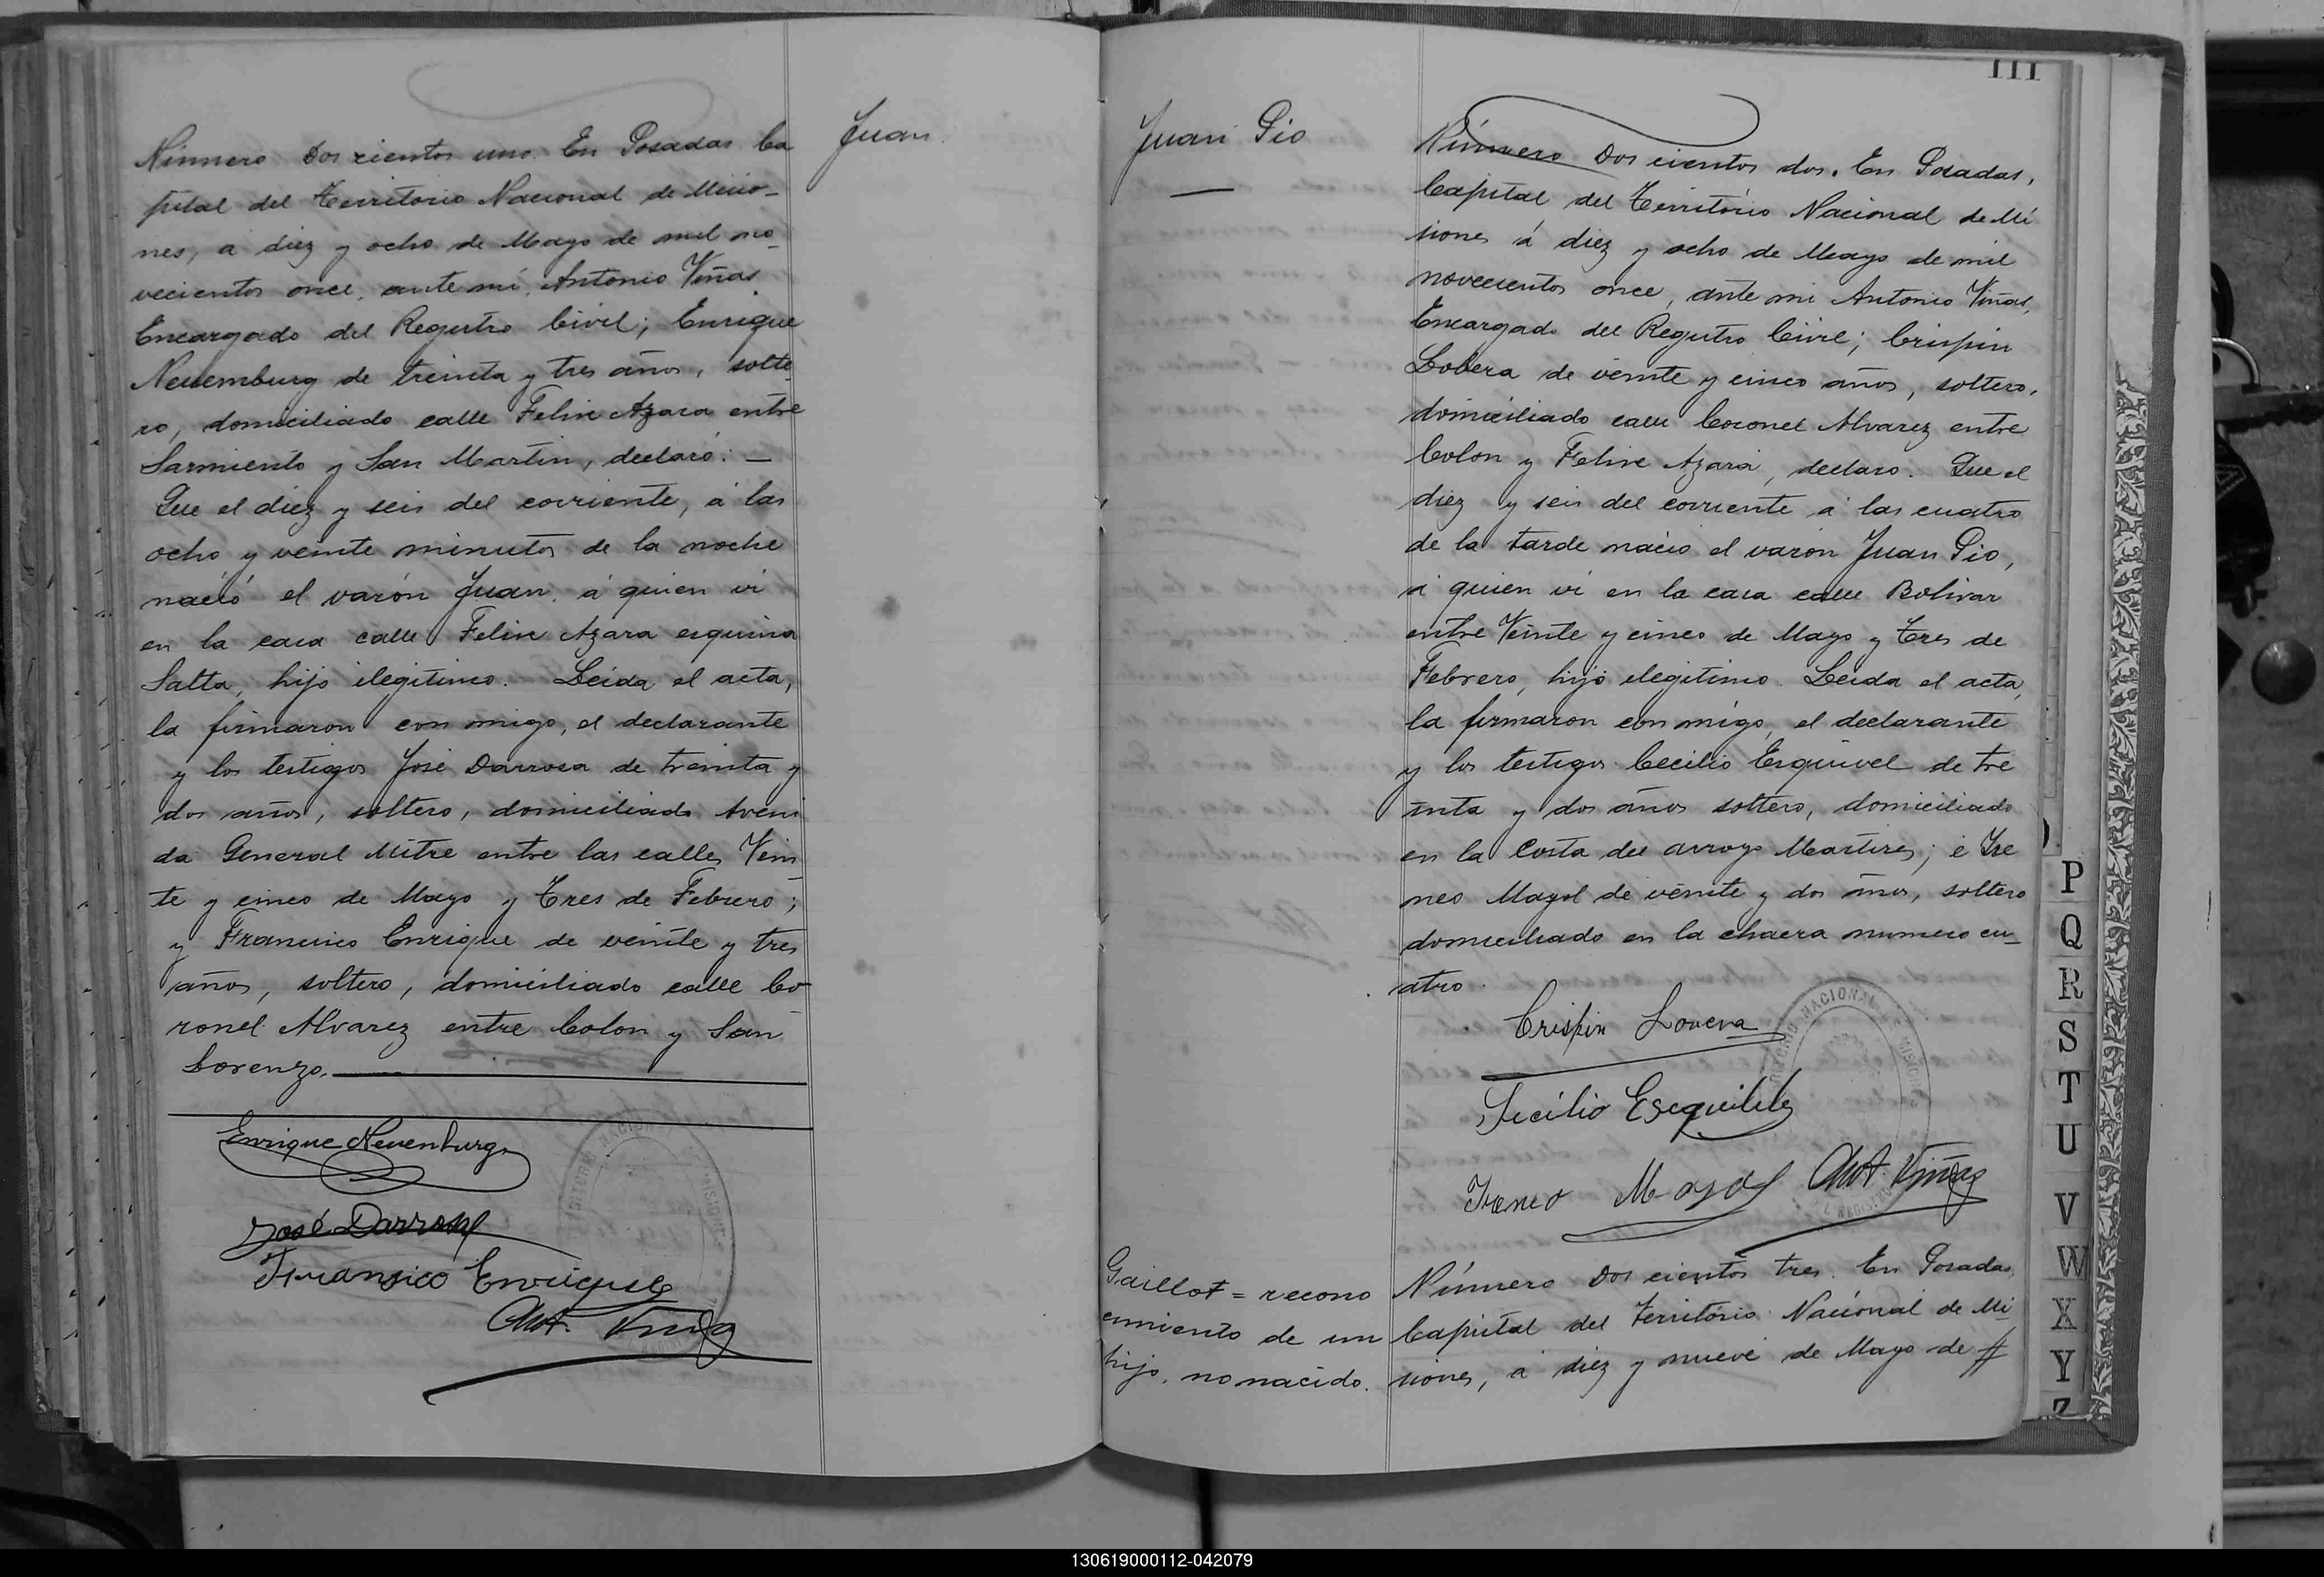 Número Dos cientos uno. En Posadas Ca
pital del Territorio Nacional de Misio-
nes, á diez y ocho de Mayo de mil no-
vecientos once, ante mí, Antonio Viñas
Encargado del Registro Civil; Enrique
Neuemburg de treinta y tres años, solte
ro, domiciliado calle Felix Azara entre
Sarmiento y San Martin, declaró: —
Que el diez y seis del corriente, á las
ocho y veinte minutos de la noche
nació el varón Juan, á quien vi
en la casa calle Felix Azara esquina
Salta, hijo ilegitimo. Leida el acta,
la firmaron con migo, el declarante
y los testigos José Darrosa de treinta y
dos años, soltero, domiciliado Aveni
da General Mitre entre las calles Vein
te y cinco de Mayo y Tres de Febrero;
y Francisco Enrique de veinte y tres
años, soltero, domiciliado calle Co-
ronel Alvarez entre Colon y San
Lorenzo.
Enrique Neuenburg
José Darrosa
Fransico Enrique
Ant. Viñas
Juan.
111
Juan Pio
Número Dos cientos dos. En Posadas,
Capital del Territorio Nacional de Mi
siones á diez y ocho de Mayo de mil
novecientos once, ante mi Antonio Viñas,
Encargado del Registro Civil; Crispin
Lobera de veinte y cinco años, soltero,
domiciliado calle Coronel Alvarez entre
Colon y Felix Azara, declaro. Que el
diez y seis del corriente á las cuatro
de la tarde nació el varón Juan Pio,
á quien vi en la casa calle Bolivar
entre Veinte y cinco de Mayo y Tres de
Febrero, hijo ilegitimo. Leida el acta,
la firmaron con migo, el declarante
y los testigos Cecilio Esquivel de tre
inta y dos años soltero, domiciliado
en la Costa del arroyo Martires; é Ire
neo Mayol de veinte y dos años, soltero
domiciliado en la chacra numero cu-
atro.
Crispin Lovera
Secilio Esquibel
Ireneo Mayol Ant. Viñas
Gaillot = recono
cimiento de un
hijo, no nacido.
Número Dos cientos tres. En Posadas,
Capital del Territorio Nacional de Mi
siones, á diez y nueve de Mayo de #
P
Q
R
S
T
U
V
W
X
Y
Z
130619000112-042079